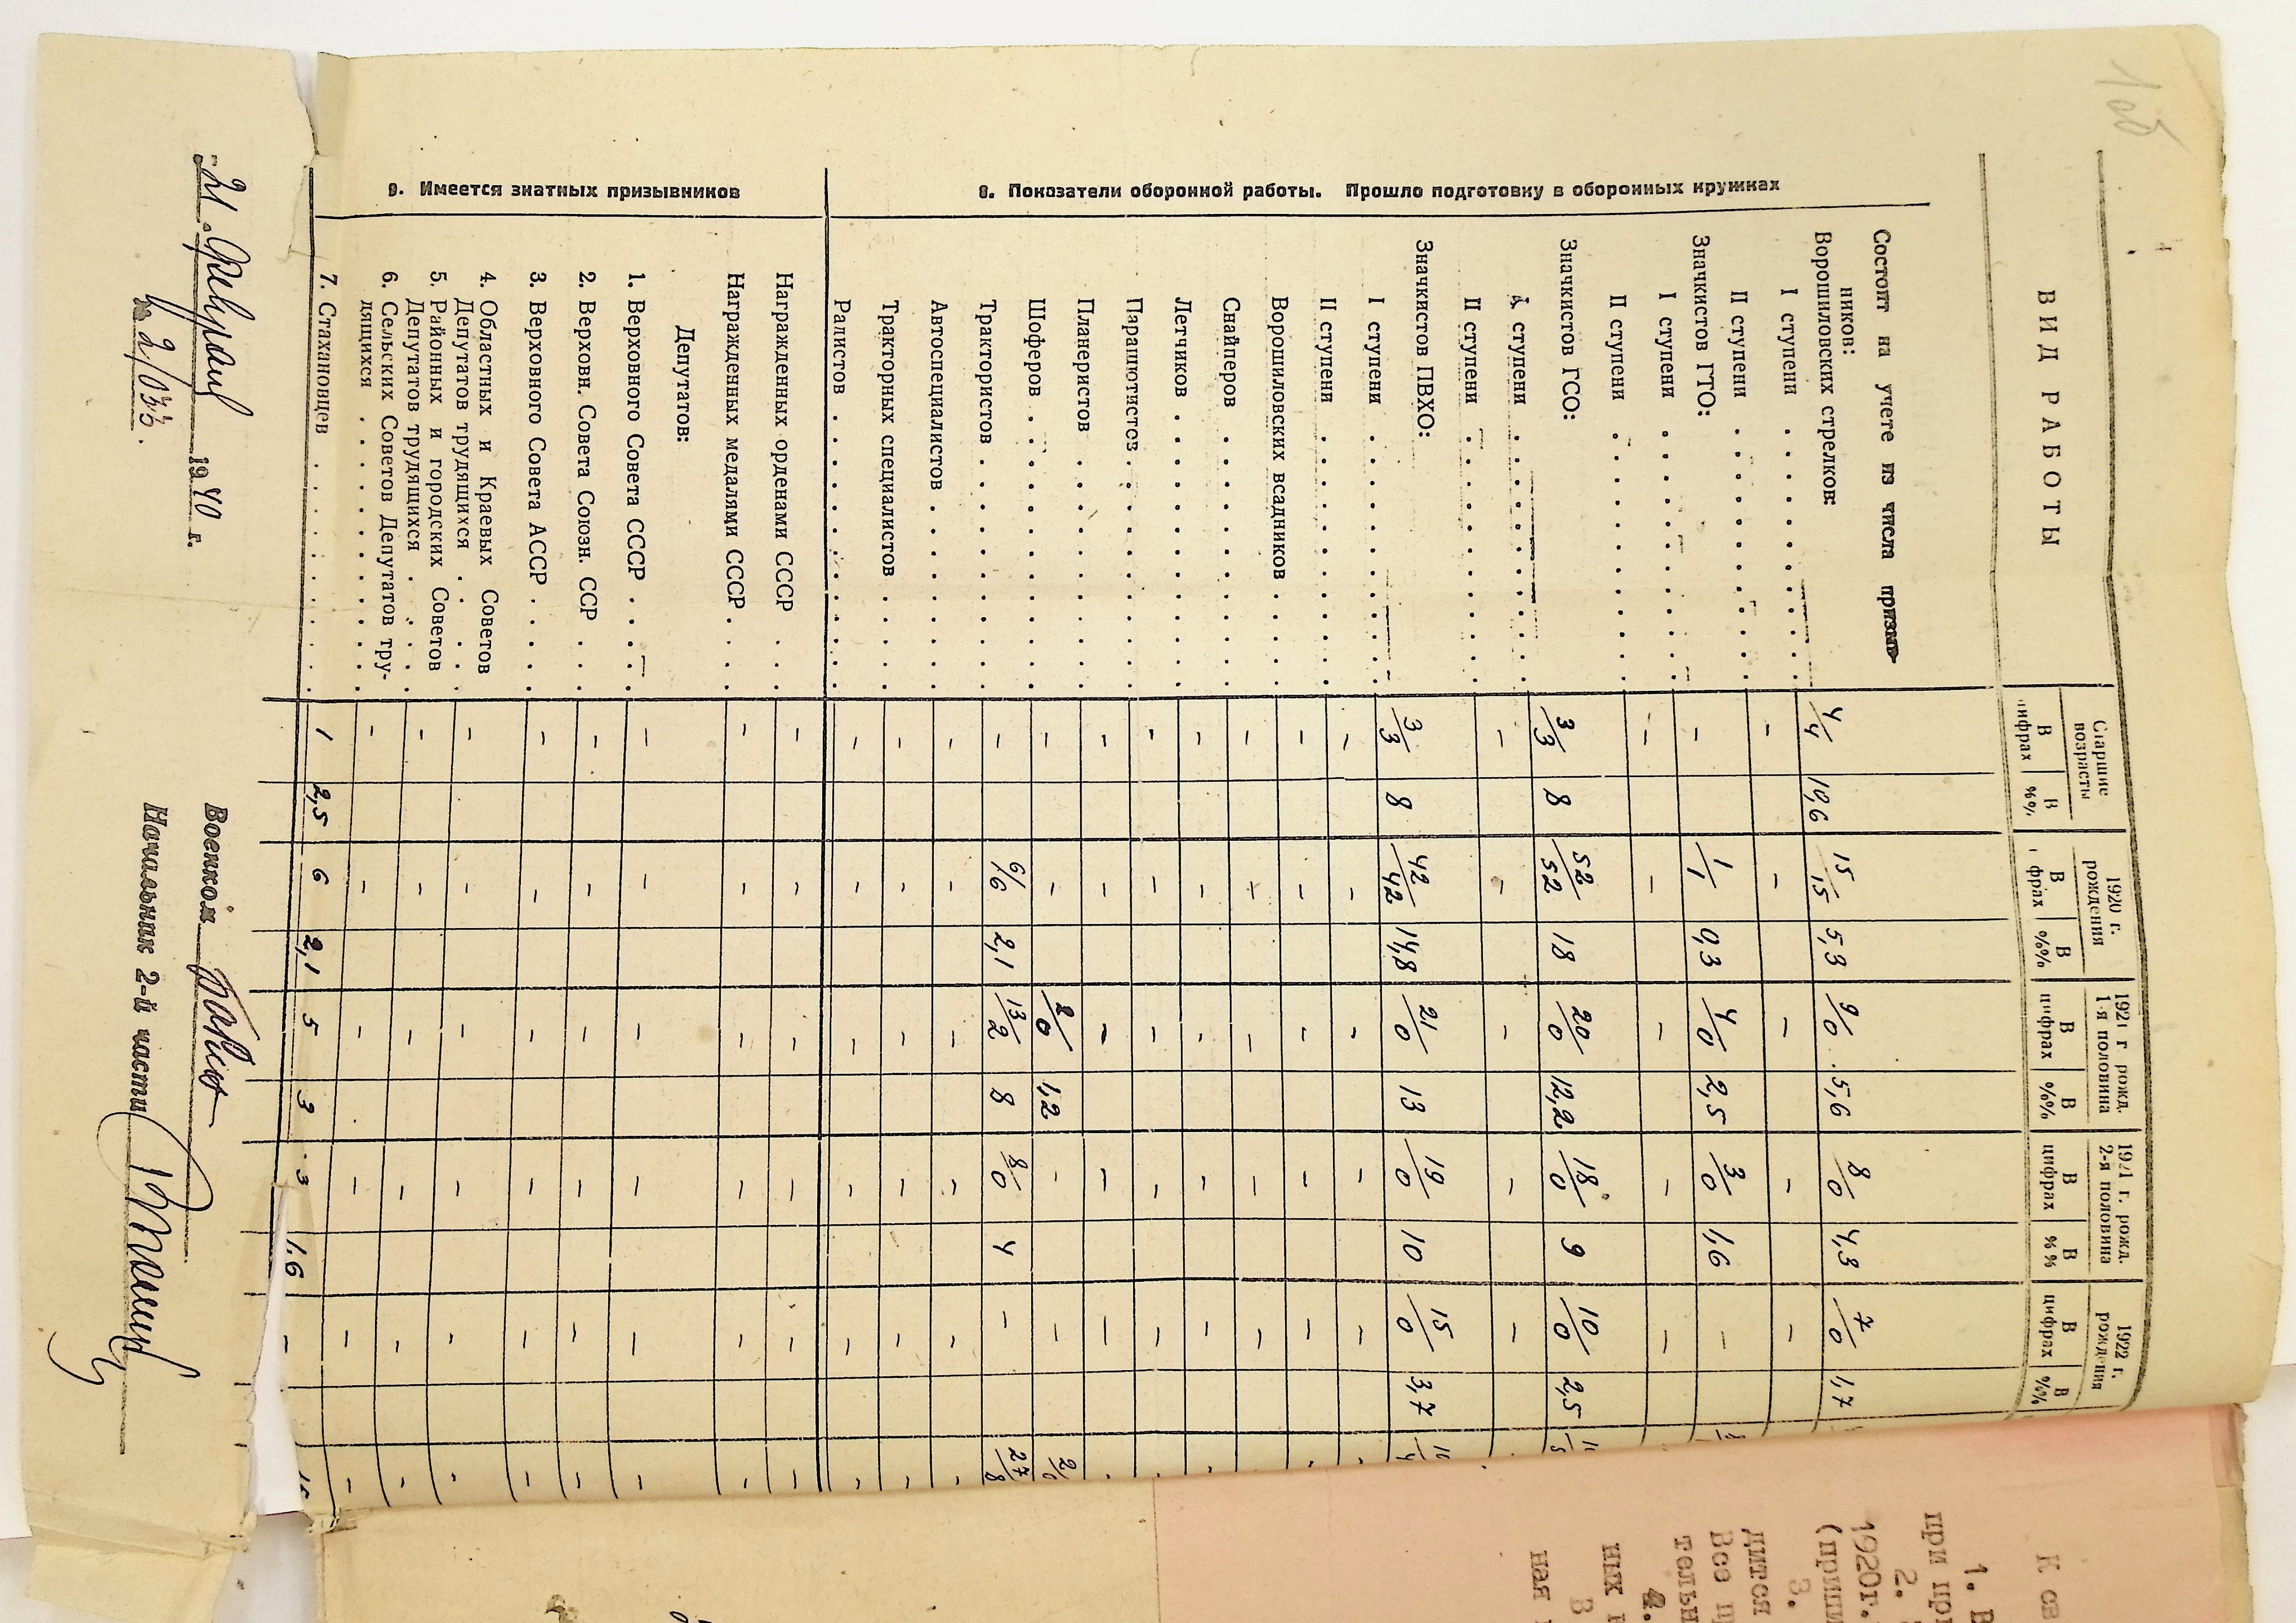 1об
ВИД РАБОТЫ
Старшие возрасты
В цифрах В %%
1920 г. рождения
В цифрах В %%
1921 г рожд. 1-я половина
В цифрах В %%
1921 г. рожд. 2-я половина
В цифрах В %%
1922 г. рождения
В цифрах В %%
8. Показатели оборонной работы. Прошло подготовку в оборонных кружках
Состоит на учете из числа призыв-
ников:
Ворошиловских стрелков:
I ступени . . . 4/4 10,6 15/15 5,3 9/0 5,6 8/0 4,3 7/0 1,7
II ступени . . . – – – – –
Значкистов ГТО:
I ступени . . . – 1/1 0,3 4/0 2,5 3/0 1,6 –
II ступени . . . – – – – –
Значкистов ГСО:
I ступени . . . 3/3 8 52/52 18 20/0 12,2 18/0 9 10/0 2,5
II ступени . . . – – – – –
Значкистов ПВХО:
I ступени . . . 3/3 8 42/42 14,8 21/0 13 19/0 10 15/0 3,7
II ступени . . . – – – – –
Ворошиловских всадников . . . – – – – –
Снайперов . . . – – – – –
Летчиков . . . – – – – –
Парашютистов . . . – – – – –
Планеристов . . . – – – – –
Шоферов . . . – – 2/0 1,2 – – 2/0
Трактористов . . . – 6/6 2,1 13/2 8 8/0 4 – 27/8
Автоспециалистов . . . – – – – – –
Тракторных специалистов . . . – – – – – –
Радистов . . . – – – – – –
9. Имеется знатных призывников
Награжденных орденами СССР . . – – – – – –
Награжденных медалями СССР . . . – – – – – –
Депутатов:
1. Верховного Совета СССР . . . . – – – – – –
2. Верховн. Совета Союзн. ССР . . – – – – – –
3. Верховного Совета АССР . . . . – – – – – –
4. Областных и Краевых Советов
Депутатов трудящихся . . . . – – – – – –
5. Районных и городских Советов
Депутатов трудящихся . . . . – – – – – –
6. Сельских Советов Депутатов тру-
дящихся . . . – – – – – –
7. Стахановцев . . . 1 2,5 6 2,1 5 3 3 1,6 –
„21„ февраля 1940 г.
№ 2/033.
Военком
Начальник 2-й части
К св
1. В
при при
2.
1920г.
(приши
3.
дится
Все п
тельн
4.
ных
В
ная